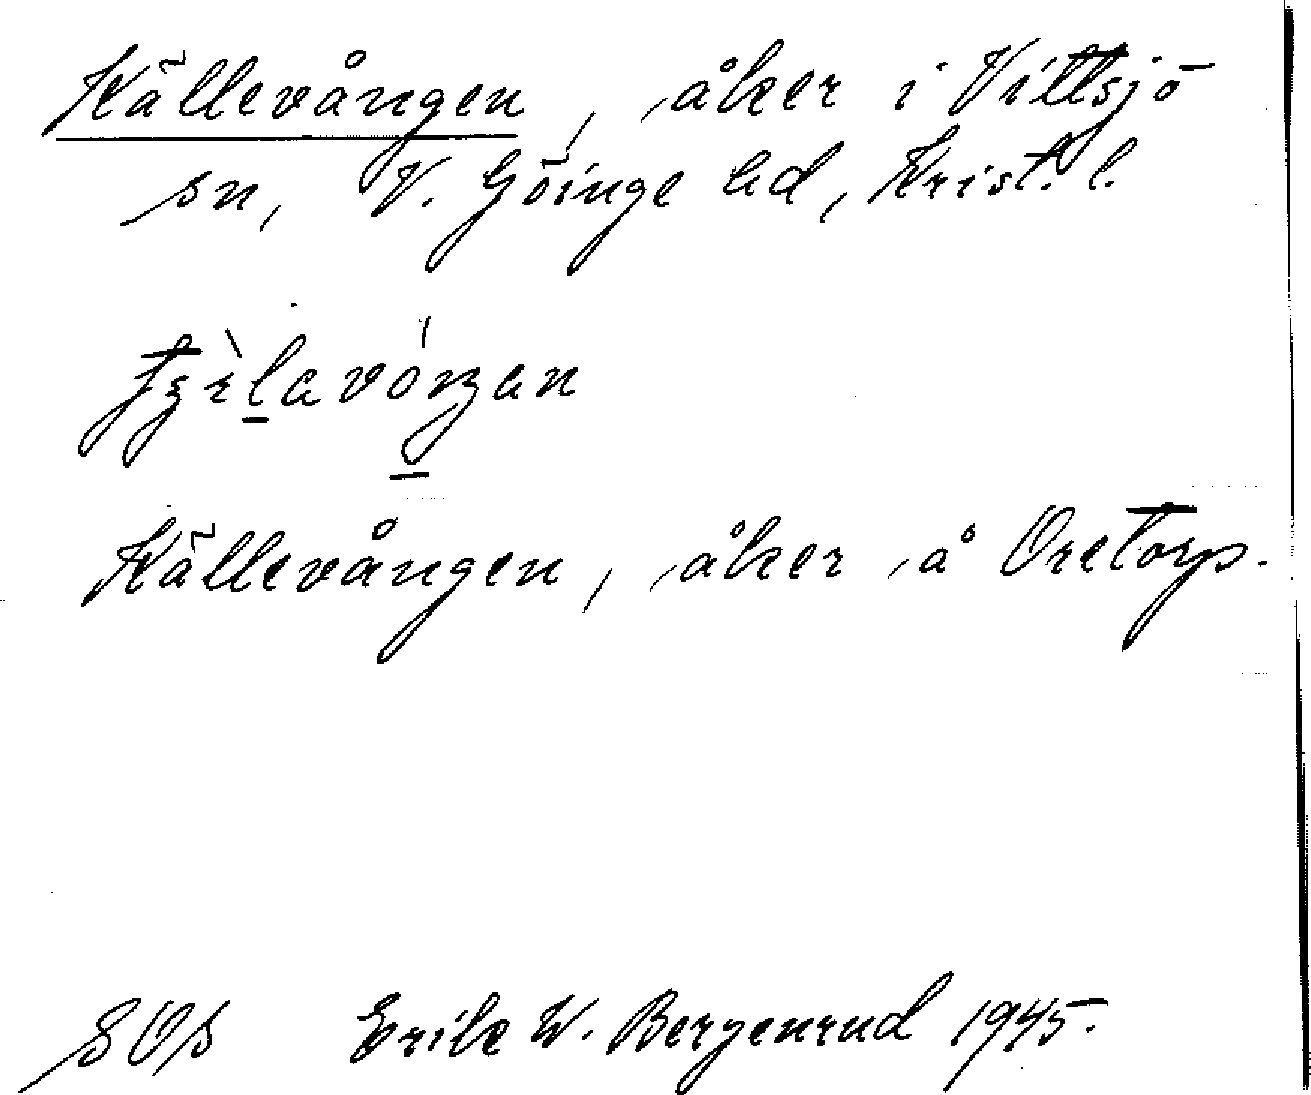 Källevången, åker i Vittsjö
sn, V. Göinge hd, Krist. l.
Källevången, åker å Oretorp.
SOS Erik W. Bergenrud 1945.